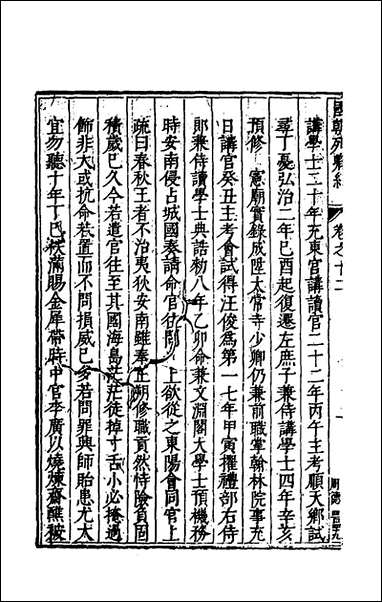 國朝列卿紀　卷之十二
講學士二十年充東宮講讀官二十二年丙午主考順天鄉試
尋丁憂弘治二年已酉起復遷左庶子兼侍講學士四年辛亥
預修　憲廟實錄成陞太常寺少卿仍兼前職掌翰林院事充
日講官癸丑主考會試得汪俊爲第一七年甲寅擢禮部右侍
郎兼侍讀學士典誥勑八年乙卯命兼文淵閣大學士預機務
時安南侵占城國奏請命官往　上欲從之東陽會同官上
疏曰春秋王者不治夷狄安南雖奉正朔修職貢然恃險負固
積歲已久今若遣官往至其國海島茫茫徒掉寸舌小必掩過
飾非大或抗命若置而不問損威已多若問罪興師貽患尤大
宜勿聽十年丁巳秩滿賜金犀帶時中官李廣以燒煉齋醮被